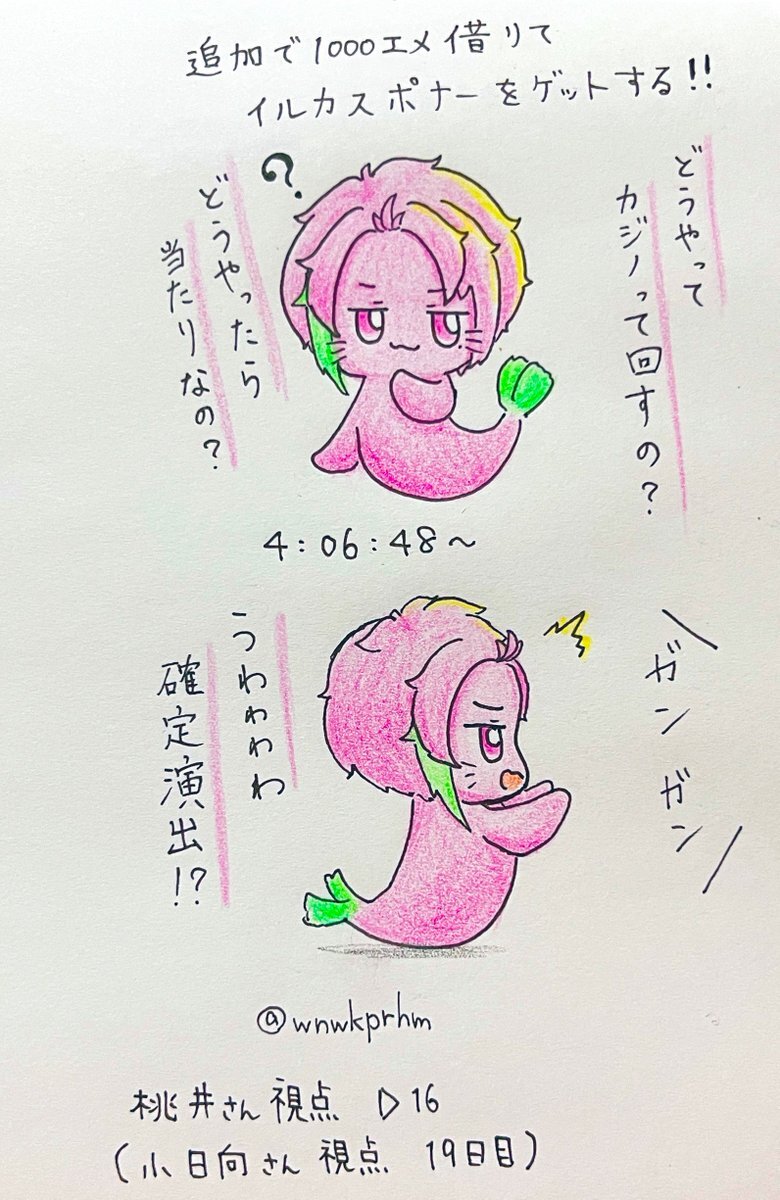 追加で1000エメ借りて
イルカスポナーをゲットする!!
どうやって
カジノって回すの?
?
どうやったら
当たりなの?
4:06:48~
ガンガン
うわわわわ
確定演出!?
@wnwkprhm
桃井さん視点 ▷16
(小日向さん視点 19日目)